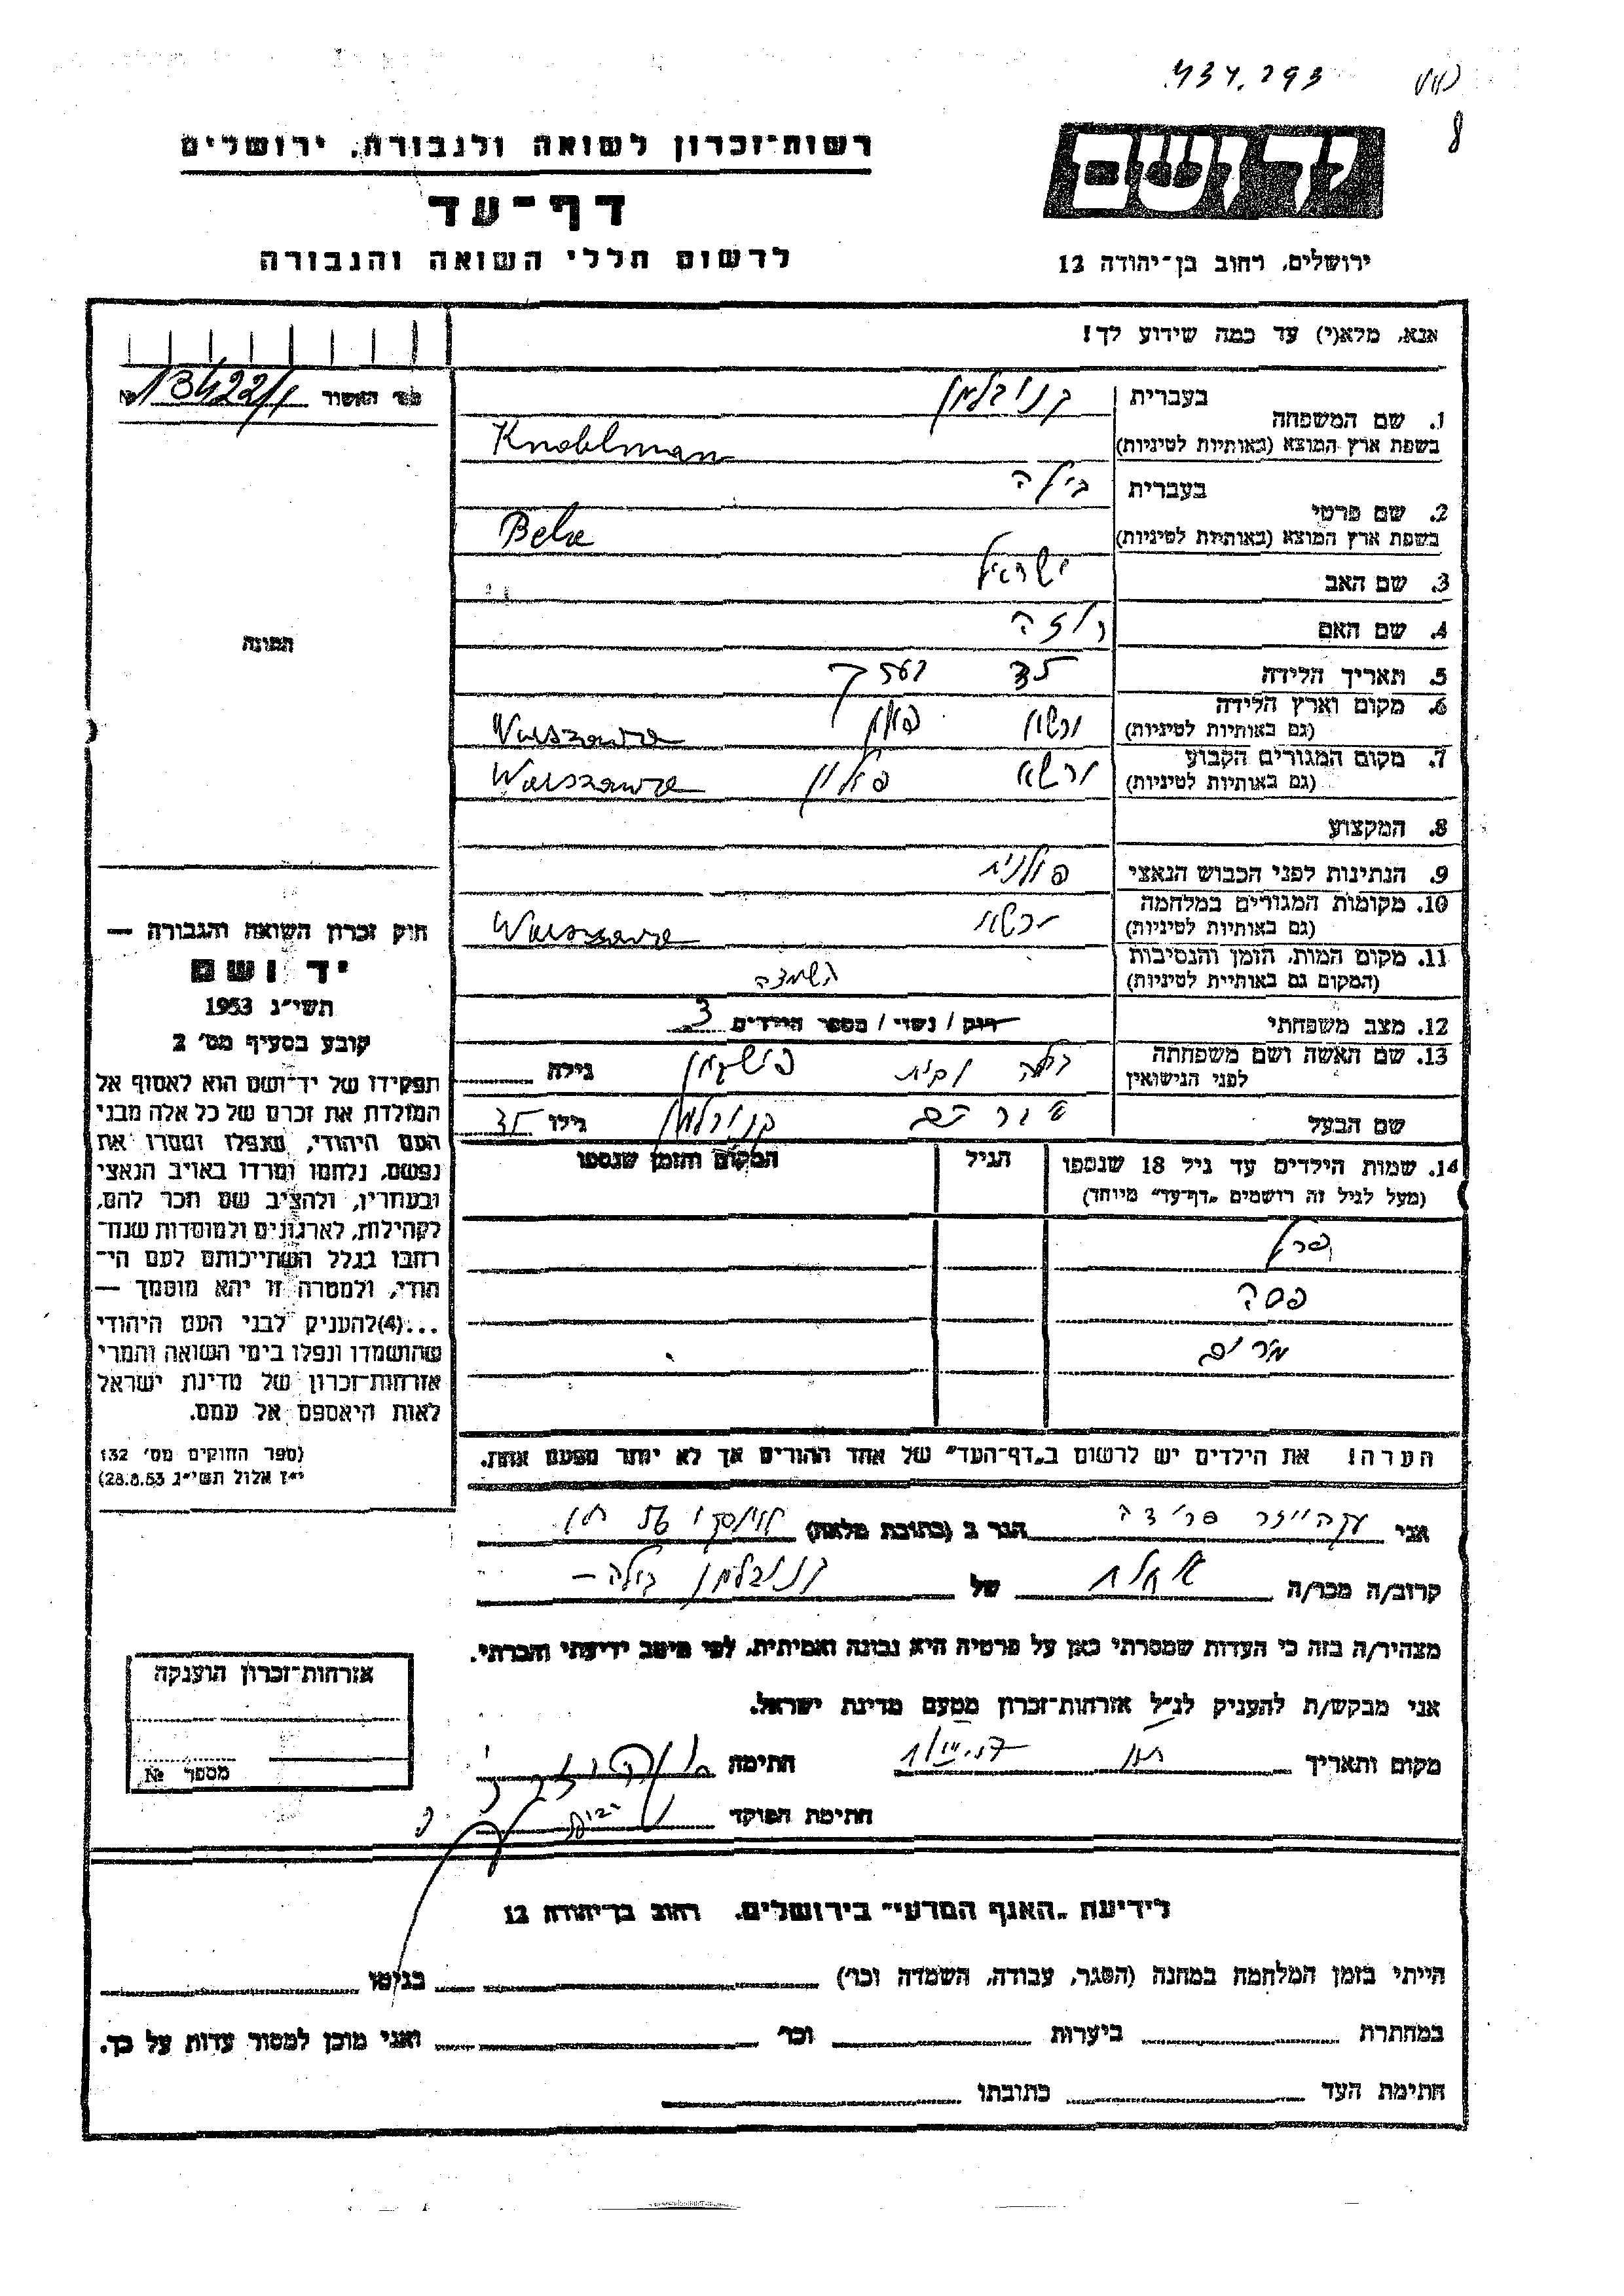 434.293
רשות־זכרון לשואה ולגבורה, ירושלים
דף־עד
לרשום חללי השואה והגבורה
יד ושם
ירושלים, רחוב בן־יהודה 12
אנא, מלא(י) עד כמה שידוע לך!
מס׳ האשור 13422/1 №
התמונה
1. שם המשפחה
בעברית קנובלמן
בשפת ארץ המוצא (באותיות לטיניות) Knoblman
2. שם פרטי
בעברית ביילה
בשפת ארץ המוצא (באותיות לטיניות) Bela
3. שם האב ישראל
4. שם האם רוזה
5. תאריך הלידה
6. מקום וארץ הלידה (גם באותיות לטיניות) ורשא פולין Warszawa
7. מקום המגורים הקבוע (גם באותיות לטיניות) ורשא פולין Warszawa
8. המקצוע
9. הנתינות לפני הכבוש הנאצי פולנית
10. מקומות המגורים במלחמה (גם באותיות לטיניות) ורשא Warszawa
11. מקום המות, הזמן והנסיבות (המקום גם באותיית לטיניות) השמדה
12. מצב משפחתי רוק / נשוי / מספר הילדים 3
13. שם האשה ושם משפחתה לפני הנישואין ביילה לבית פישמן גילה
שם הבעל קנובלמן גילו 35
14. שמות הילדים עד גיל 18 שנספו
(מעל לגיל זה רושמים „דף־עד״ מיוחד)
הגיל
המקום והזמן שנספו
פרל
פסה
מרים
הערה! את הילדים יש לרשום ב„דף־העד״ של אחד ההורים אך לא יותר מפעם אחת.
חוק זכרון השואה והגבורה —
יד ושם
תשי״ג 1953
קובע בסעיף מס׳ 2
תפקידו של יד־ושם הוא לאסוף אל
המולדת את זכרם של כל אלה מבני
העם היהודי, שנפלו ומסרו את
נפשם, נלחמו ומרדו באויב הנאצי
ובעוזריו, ולהציב שם וזכר להם,
לקהילות, לארגונים ולמוסדות שנח־
רבו בגלל השתייכותם לעם הי־
הודי, ולמטרה זו יהא מוסמך —
...(4)להעניק לבני העם היהודי
שהושמדו ונפלו בימי השואה והמרי
אזרחות־זכרון של מדינת ישראל
לאות היאספם אל עמם.
(ספר החוקים מס׳ 132
י״ז אלול תשי״ג 28.8.53)
אני הגר ב (כתובת מלאה)
קרוב/ה מכר/ה של קנובלמן ביילה —
מצהיר/ה בזה כי העדות שמסרתי כאן על פרטיה היא נכונה ואמיתית, לפי מיטב ידיעתי והכרתי.
אני מבקש/ת להעניק לנ״ל אזרחות־זכרון מטעם מדינת ישראל.
מקום ותאריך חתימה
חתימת הפוקד
אזרחות־זכרון הוענקה
מספר №
לידיעת „האגף המדעי״ בירושלים, רחוב בן־יהודה 12
הייתי בזמן המלחמה במחנה (הסגר, עבודה, השמדה וכו׳) בגיטו
במחתרת ביערות וכו׳ ואני מוכן למסור עדות על כך.
חתימת העד כתובתו